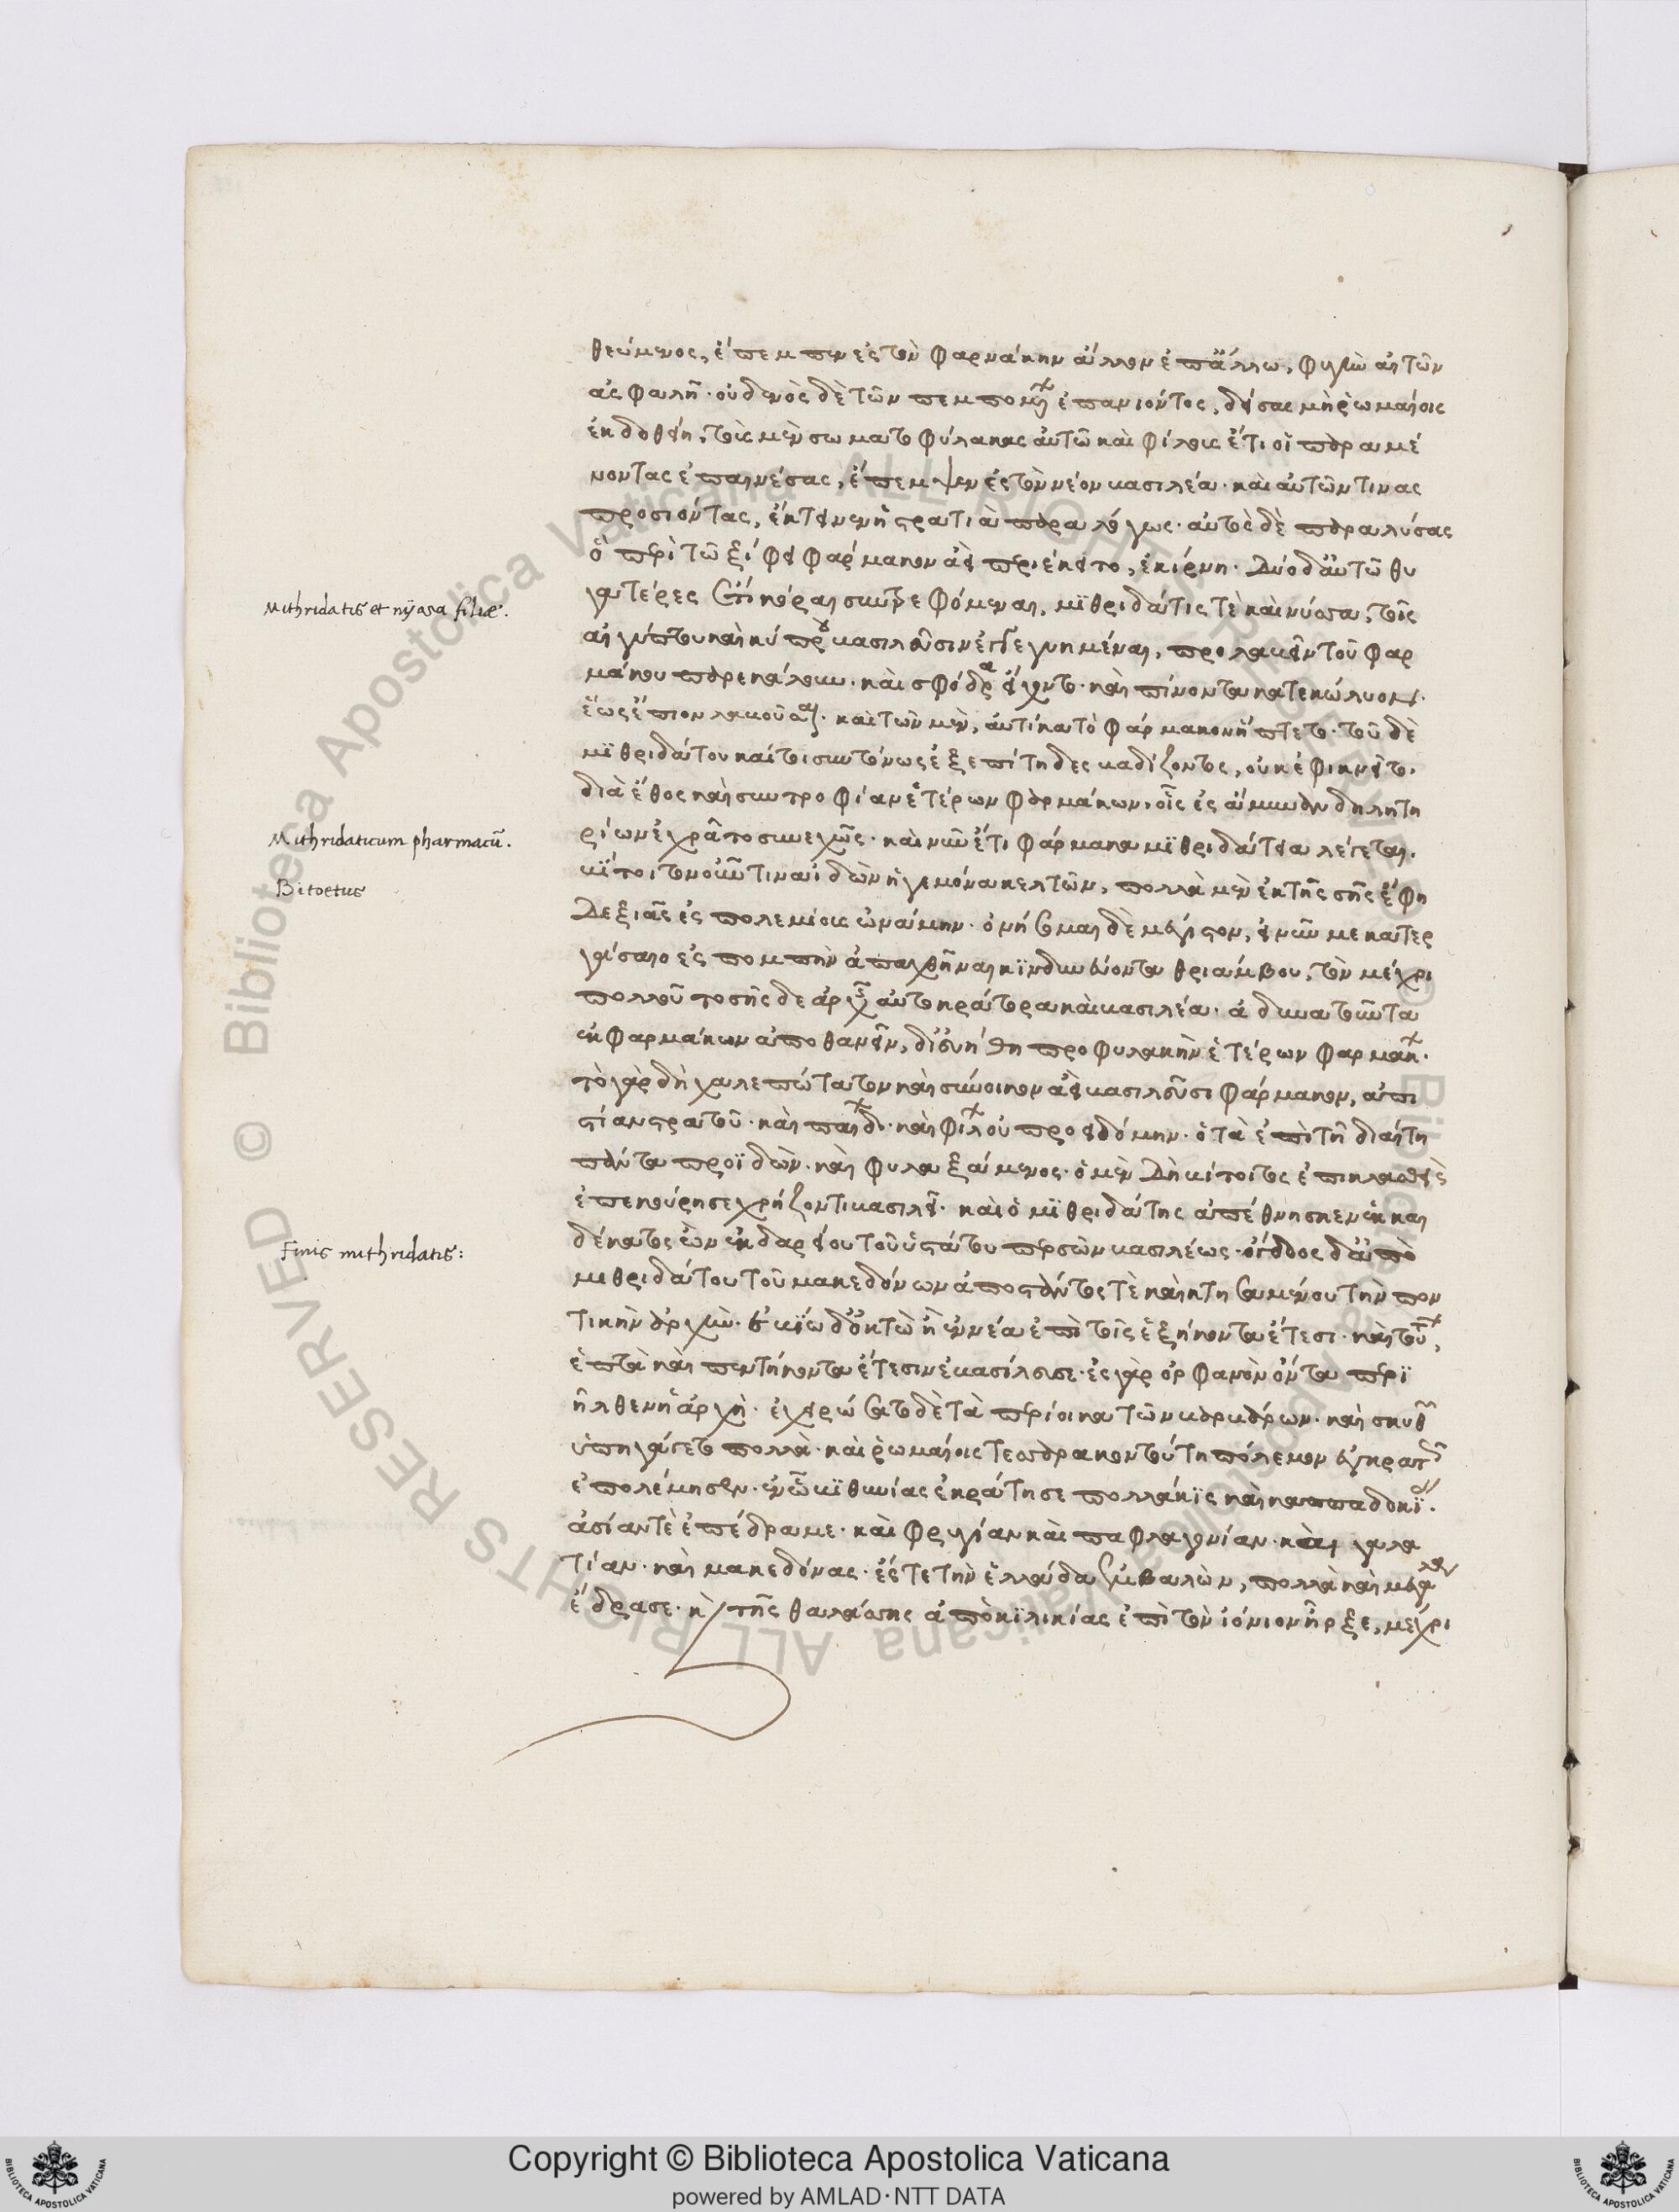 θεώμενος, ἔπεμπεν ἐς τὸν φαρνάκην ἄλλον ἐπἄλλω, φυγὴν αἰτῶν
ἀσφαλῆ. οὐδενὸς δὲ τῶν πεμπομένων ἐπανιόντος, δείσας μὴ ῥωμαίοις
ἐκδοθείη, τοὺς μὲν σωματοφύλακας αὐτοῦ καὶ φίλους ἔτι οἱ παραμέ
νοντας ἐπαινέσας, ἔπεμψεν ἐς τὸν νέον βασιλέα. καὶ αὐτῶν τινας
προσιόντας, ἔκτεινεν ἡ στρατιὰ παραλόγως. αὐτὸς δὲ παραλύσας
ὃ περὶ τῶ ξίφει φάρμακον ἀεὶ περιέκειτο, ἐκίρνη. δύο δ' αὐτῶ θυ
Mithridatis et nÿasa filiæ.
γατέρες ἔτι κόραι συντρεφόμεναι, μϊθριδάτις τὲ καὶ νύσσα, τοῖς
αἰγύπτου καὶ κύπρου βασιλεῦσιν ἐγγεγυημέναι, προλαβεῖν τοῦ φαρ
μάκου παρεκάλουν. καὶ σφόδρα εἴχοντο. καὶ πίνοντα κατεκώλυον.
ἕως ἔπιον λαβοῦσαι. καὶ τῶν μὲν, αὐτίκα τὸ φάρμακον ἥπτετο. τοῦ δὲ
μϊθριδάτου καίτοι συντόνως ἐξεπίτηδες βαδίζοντος, οὐκ ἐφικνεῖτο.
διὰ ἔθος καὶ συντροφίαν ἑτέρων φαρμάκων, οἷς ἐς ἄμυναν δηλητη
Mithridaticum pharmacū.
ρίων ἐχρᾶτο συνεχῶς. καὶ νῦν ἔτι φάρμακα μϊθριδάτεια λέγεται.
Bitoetus
βίτοιτον οὖν τινα ἰδὼν ἡγεμόνα κελτῶν, πολλὰ μὲν ἐκ τῆς σῆς ἔφη
δεξιᾶς ἐς πολεμίους ὠνάμην. ὀνήσομαι δὲ μέγιστον, εἰ νῦν με κατερ
γάσαιο ἐς πομπὴν ἀπαχθῆναι κϊνδυνεύοντα θριάμβου, τὸν μέχρι
πολλοῦ τοσῆς δε ἀρχῆς αὐτοκράτορα καὶ βασιλέα. ἀδυνατοῦντα
ἐκ φαρμάκων ἀποθανεῖν, δι' εὐήθη προφυλακὴν ἑτέρων φαρμάκων.
τὸ γὰρ δὴ χαλεπώτατον καὶ σύνοικον ἀεὶ βασιλεῦσι φάρμακον, ἀπι
στίαν στρατοῦ. καὶ παίδων. καὶ φίλων οὐ προειδόμην. ὁ τὰ ἐπὶ τῆ διαίτη
πάντα προϊδὼν. καὶ φυλαξάμενος. ὁ μὲν δὴ βίτοιτος ἐπικλασθεὶς
ἐπεκούρησε χρήζοντι βασιλεῖ. καὶ ὁ μϊθριδάτης ἀπέθνησκεν ἑκκαι
Finis mithridatis:
δέκατος ὢν ἐκ δαρείου τοῦ ὑστάτου περσῶν βασιλέως. ὄγδοος δ' ἀπὸ
μιθριδάτου τοῦ μακεδόνων ἀποστάντος τὲ καὶ κτησαμένου τὴν πον
τικὴν ἀρχὴν. ἐβϊω δ' ὀκτὼ ἢ ἐννέα ἐπὶ τοῖς ἑξήκοντα ἔτεσι. καὶ τούτων,
ἑπτὰ καὶ πεντήκοντα ἔτεσιν ἐβασίλευσε. ἐς γὰρ ὀρφανὸν ὄντα περϊ
ῆλθεν ἡ ἀρχὴ. ἐχειρώσατο δὲ τὰ περίοικα τῶν βαρβάρων. καὶ σκυθῶν
ὑπηγάγετο πολλὰ. καὶ ῥωμαίοις τεσσαρακοντούτη πόλεμον ἐγκρατῶς
ἐπολέμησεν. ἐν ῶ βϊθυνίας ἐκράτησε πολλάκϊς καὶ καππαδοκϊας.
ἀσίαν τὲ ἐπέδραμε. καὶ φρυγίαν καὶ παφλαγονίαν. καὶ γαλα
τίαν. καὶ μακεδόνας. ἔς τε τὴν ἑλλάδα ἐμβαλὼν, πολλὰ καὶ μεγάλα
ἔδρασε. καὶ τῆς θαλάσσης ἀπὸ κϊλικίας ἐπὶ τὸν ἰόνιον ἦρξε, μέχρι
© Biblioteca Apostolica Vaticana ALL RIGHTS RESERVED
Copyright © Biblioteca Apostolica Vaticana
powered by AMLAD·NTT DATA